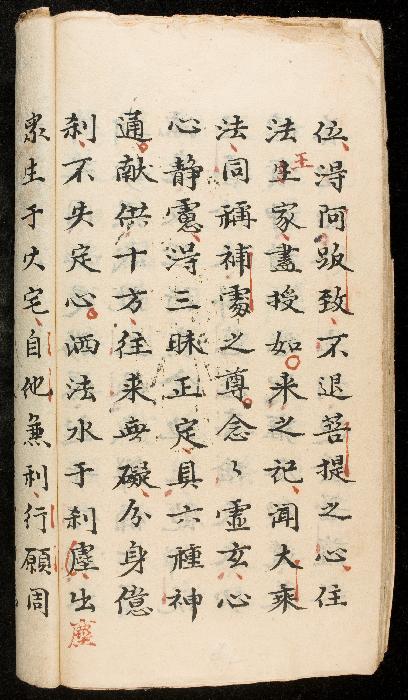 位淂阿跋致不退菩提之心住
法生家盡授如来之記聞大乘
王
法同稱補處之尊念〻虛玄心
心静慮淂三昧正定具六種神
通献供十方往来無礙分身億
刹不失定心洒法水于刹塵出
塵
衆生于火宅自他兼利行願周